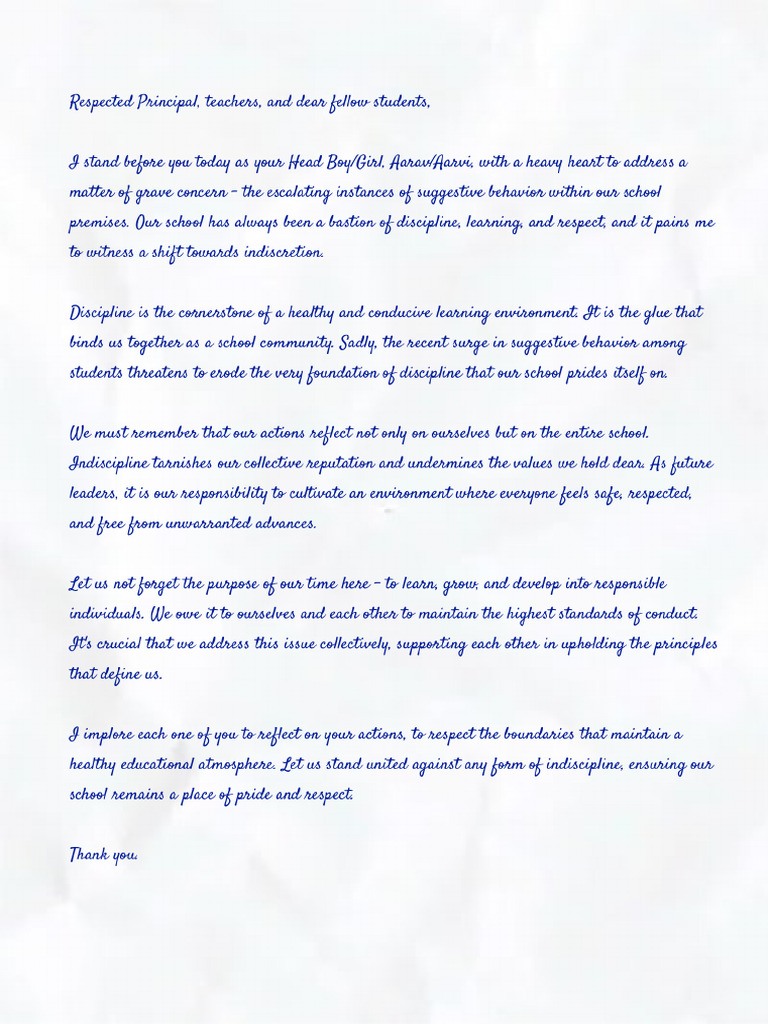 Respected Principal, teachers, and dear fellow students,
I stand before you today as your Head Boy/Girl, Aarav/Aarvi, with a heavy heart to address a
matter of grave concern - the escalating instances of suggestive behavior within our school
premises. Our school has always been a bastion of discipline, learning, and respect, and it pains me
to witness a shift towards indiscretion.
Discipline is the cornerstone of a healthy and conducive learning environment. It is the glue that
binds us together as a school community. Sadly, the recent surge in suggestive behavior among
students threatens to erode the very foundation of discipline that our school prides itself on.
We must remember that our actions reflect not only on ourselves but on the entire school.
Indiscipline tarnishes our collective reputation and undermines the values we hold dear. As future
leaders, it is our responsibility to cultivate an environment where everyone feels safe, respected,
and free from unwarranted advances.
Let us not forget the purpose of our time here - to learn, grow, and develop into responsible
individuals. We owe it to ourselves and each other to maintain the highest standards of conduct.
It's crucial that we address this issue collectively, supporting each other in upholding the principles
that define us.
I implore each one of you to reflect on your actions, to respect the boundaries that maintain a
healthy educational atmosphere. Let us stand united against any form of indiscipline, ensuring our
school remains a place of pride and respect.
Thank you.